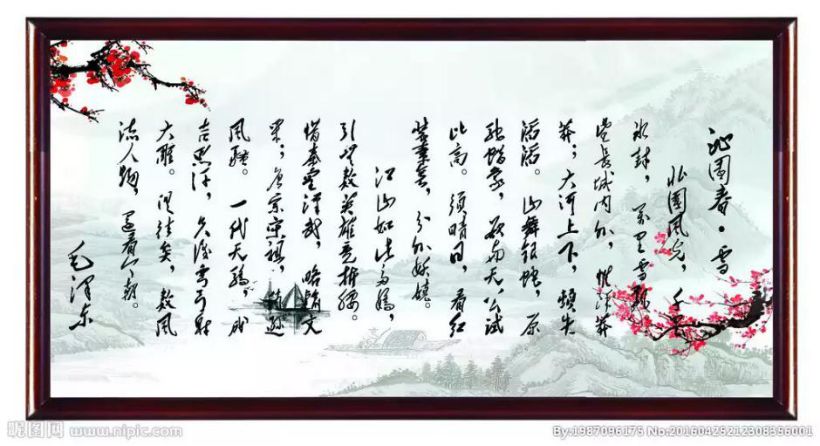 沁园春·雪
北国风光，千里
冰封，万里雪飘
望长城内外，惟余莽
莽；大河上下，顿失
滔滔。山舞银蛇，原
驰蜡象，欲与天公试
比高。须晴日，看红
装素裹，分外妖娆。
江山如此多娇，
引无数英雄竞折腰。
惜秦皇汉武，略输文
采；唐宗宋祖，稍逊
风骚。一代天骄，成
吉思汗，只识弯弓射
大雕。俱往矣，数风
流人物，还看今朝。
毛泽东
昵图网 www.nipic.com
By:1987096175 No:20160425212308356001